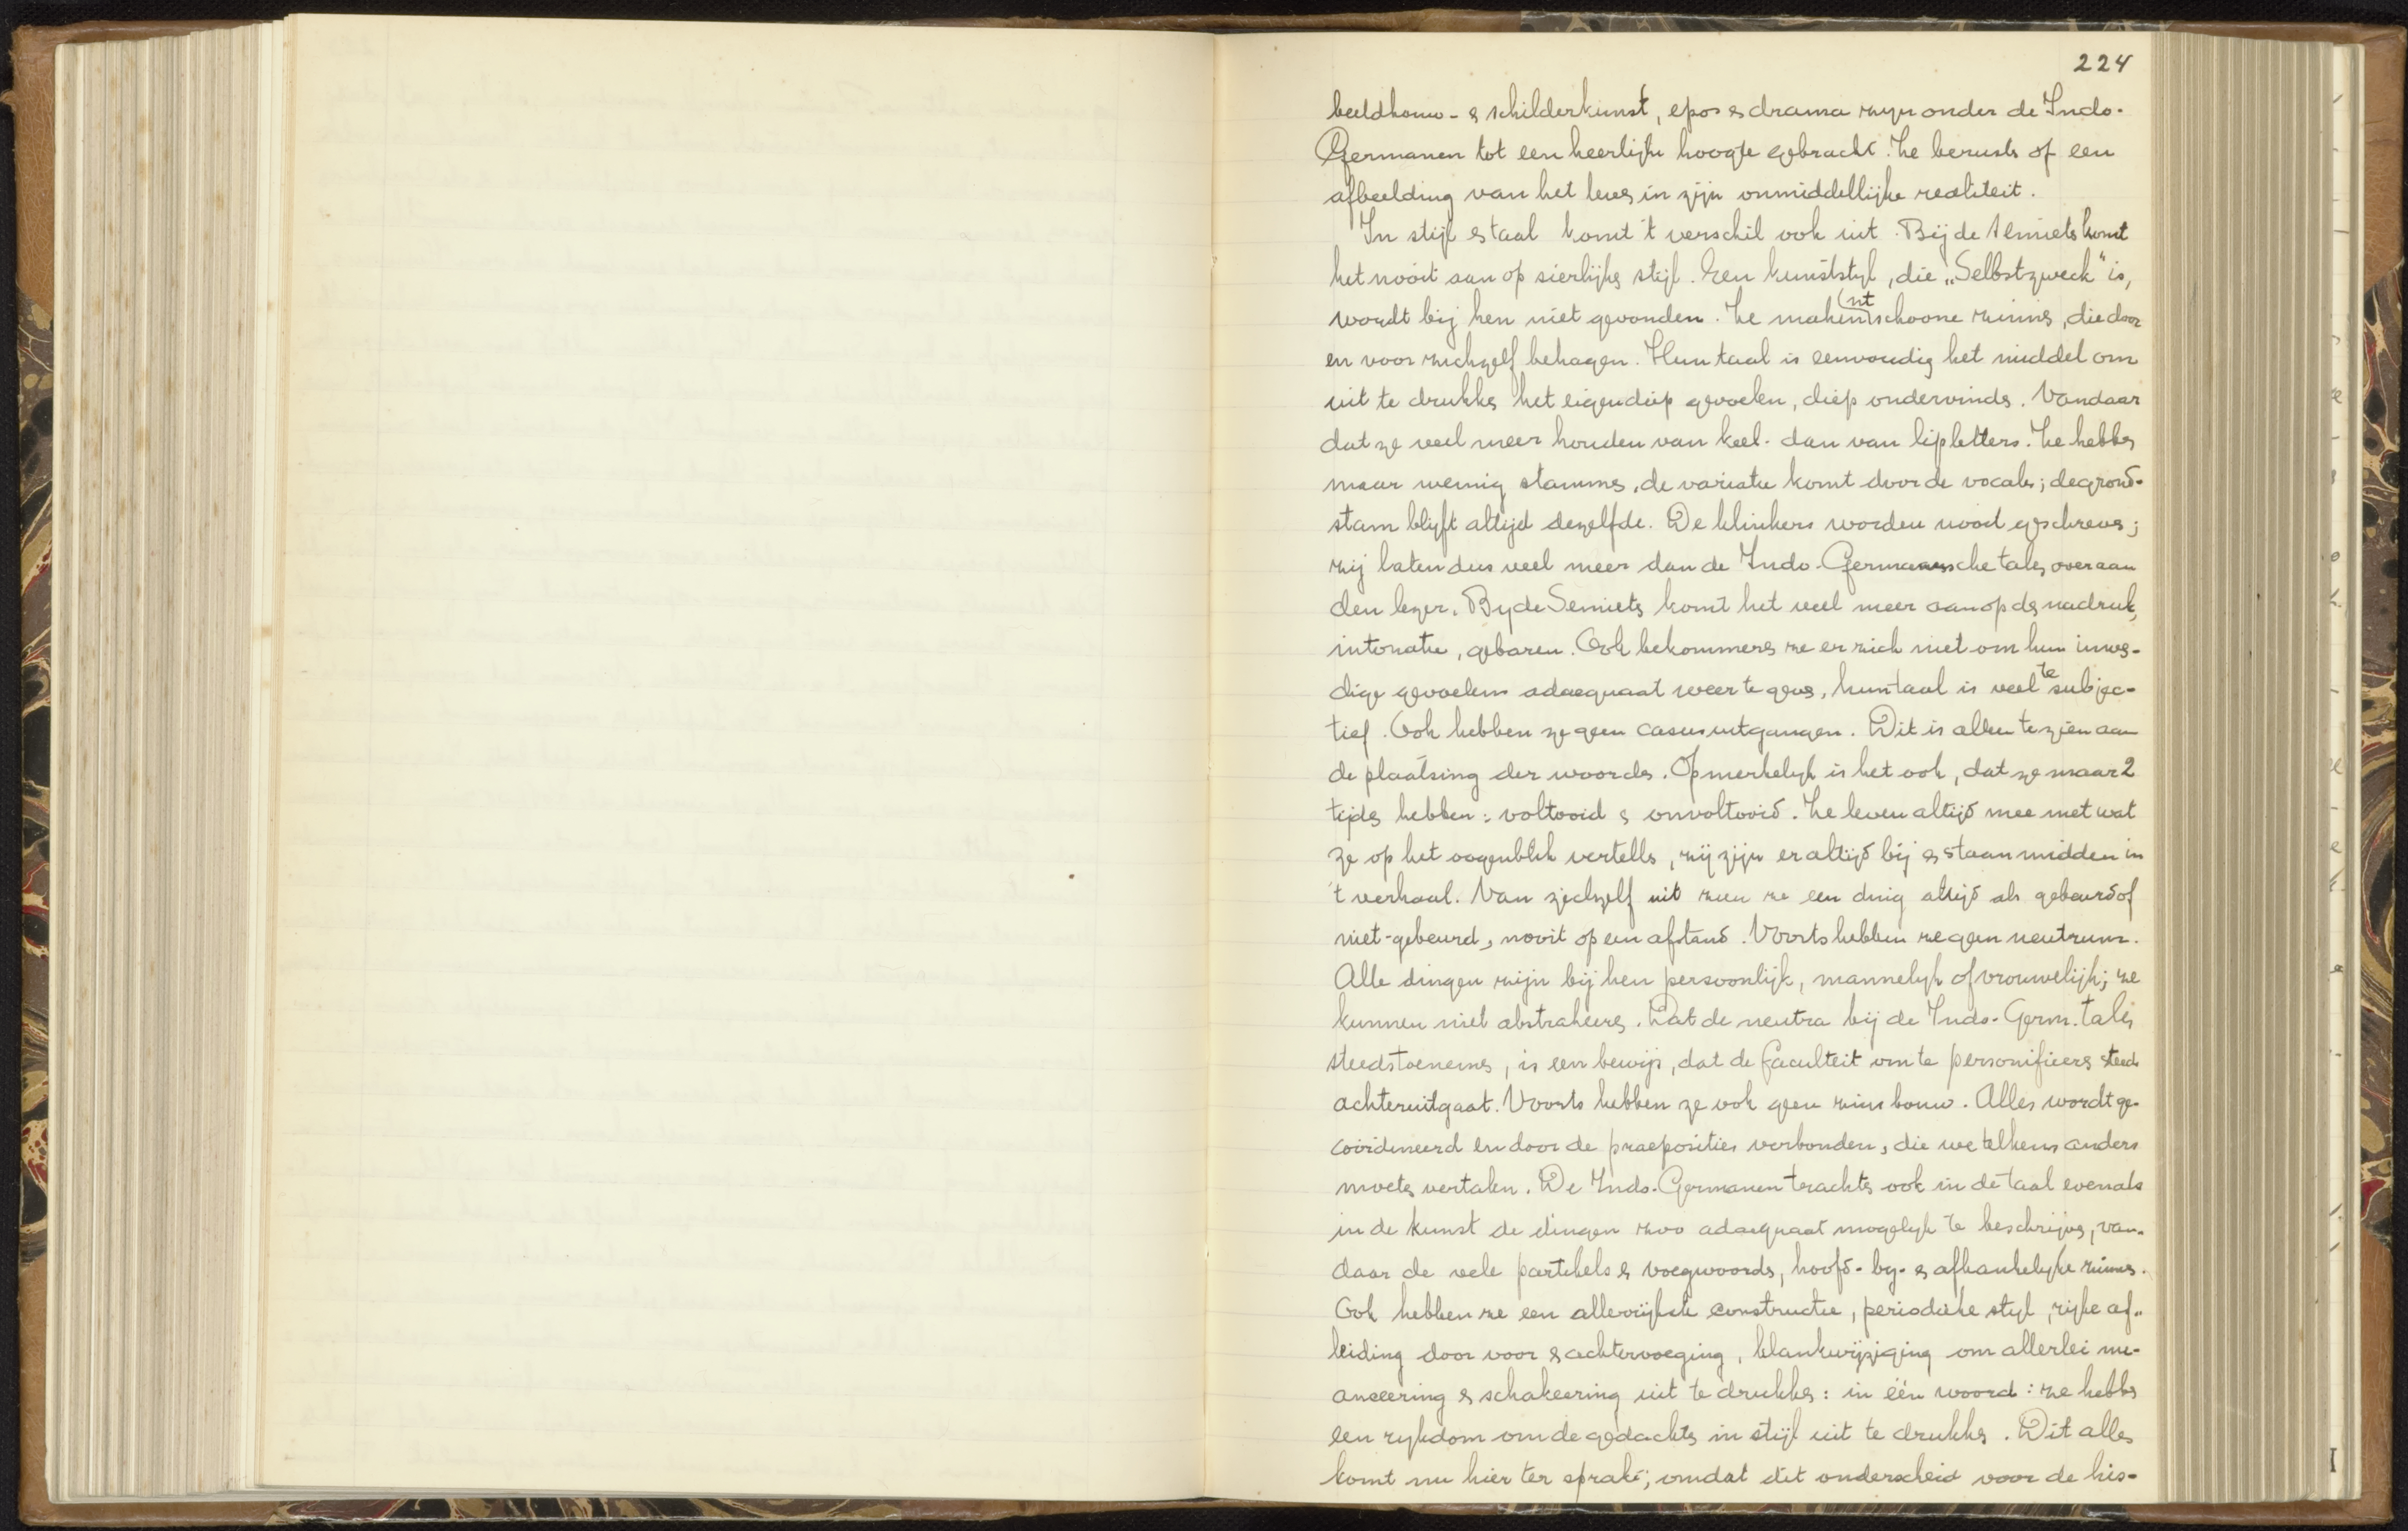 224
beeldhouw- & schilderkunst, epos & drama zijn onder de Indo-
Germanen tot een heerlijke hoogte gebracht. Ze berusts of een
afbeelding van het leven in zijn onmiddellijke realiteit.
In stijl & taal komt 't verschil ook uit. Bij de Semiets komt
het nooit aan op sierlijke stijl. Een kunststyl, die „Selbstzweck" is,
wordt bij hen niet gevonden. Ze maken (nt schoone zinnen, die door
en voor zichzelf behagen. Hun taal is eenvoudig het middel om
uit te drukken het eigen diep gevoelen, diep ondervinden. Vandaar
dat ze veel meer houden van keel- dan van lipletters. Ze hebben
maar weinig stammen, de variatie komt door de vocalen; de grond-
stam blijft altijd dezelfde. De klinkers worden nooit geschreven;
zij laten dus veel meer dan de Indo-Germaansche talen over aan
den lezer. By de Semieten komt het veel meer aan op den nadruk,
intonatie, gebaren. Ook bekommeren ze er zich niet om hun inwen-
dige gevoelens adaequaat weer te geven, hun taal is veel te subjec-
tief. Ook hebben ze geen casusuitgangen. Dit is alleen te zien aan
de plaatsing der woorden. Opmerkelyk is het ook, dat ze maar 2
tijden hebben: voltooid & onvoltooid. Ze leven altijd mee met wat
ze op het oogenblik vertellen, zij zijn er altijd bij & staan midden in
't verhaal. Van zichzelf uit zien ze een ding altijd als gebeurd of
niet-gebeurd, nooit op een afstand. Voorts hebben ze geen neutrum.
Alle dingen zijn bij hen persoonlijk, mannelyk of vrouwelijk; ze
kunnen niet abstraheeren. Dat de neutra bij de Indo-Germ. talen
steeds toenemen, is een bewijs, dat de faculteit om te personifieeren steeds
achteruitgaat. Voorts hebben ze ook geen zinsbouw. Alles wordt ge-
coördineerd en door de praeposities verbonden, die we telkens anders
moeten vertalen. De Indo-Germanen trachten ook in de taal evenals
in de kunst de dingen zoo adaequaat mogelyk te beschrijven, van-
daar de vele partikels & voegwoorden, hoofd- by- & afhankelyke zinnen.
Ook hebben ze een allerrijkste constructie, periodieke styl, rijke af-
leiding door voor & achtervoeging, klankwijziging om allerlei nu-
anceering & schakeering uit te drukken: in één woord: ze hebben
een rykdom om de gedachten in stijl uit te drukken. Dit alles
komt nu hier ter sprake; omdat dit onderscheid voor de his-